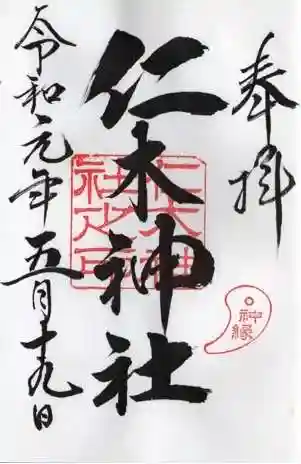 奉拝
仁木神社
令和元年五月十九日
仁木神社之印
神縁